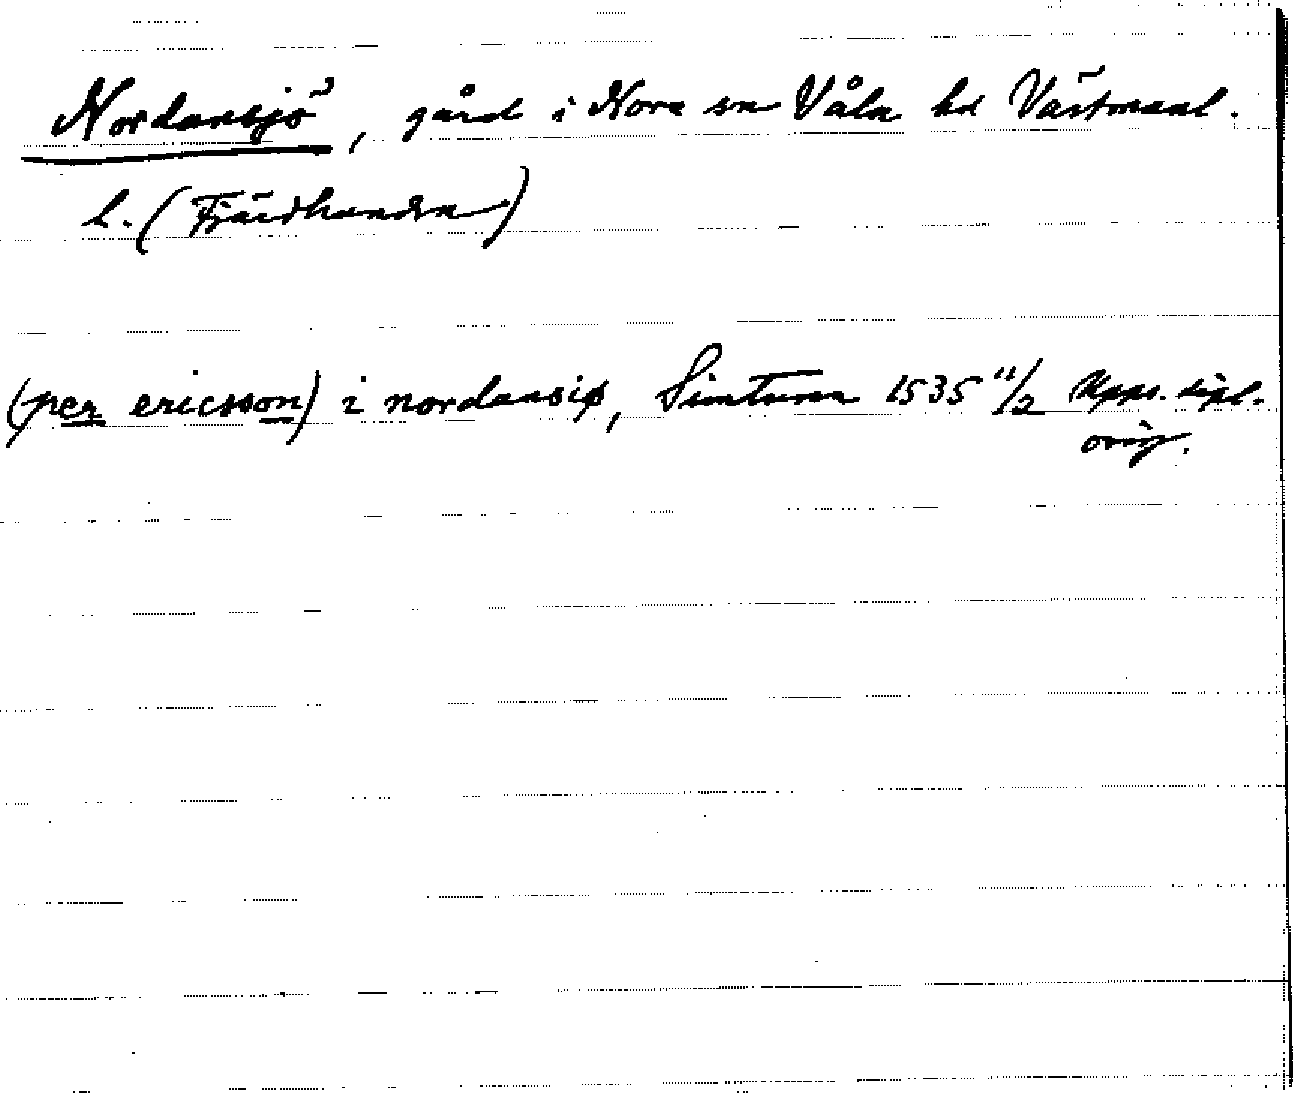 Nordansjö, gård i Nora sn Våla hd Västmanl.
l. (Fjärdhundra)
(per ericsson) i nordansiø, Simtuna 1535 11/2 Upps. dipl.
orig.